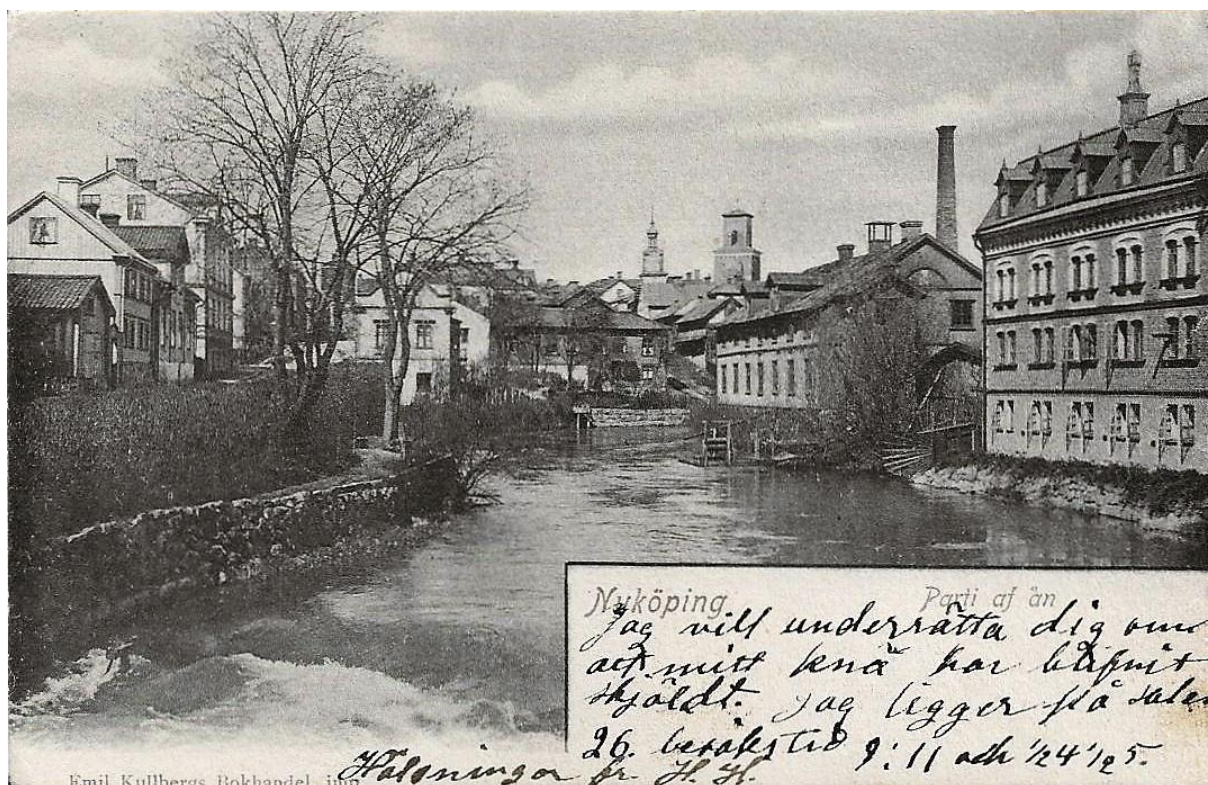 Nyköping Parti af ån
Jag vill underrätta dig om
att mitt knä har blifvit
skjöldt. Jag ligger på salen
26. besökstid 9:11 och 1/24 1/25.
Hälsningar fr. H. H.
Emil Kullbergs Bokhandel, imp.